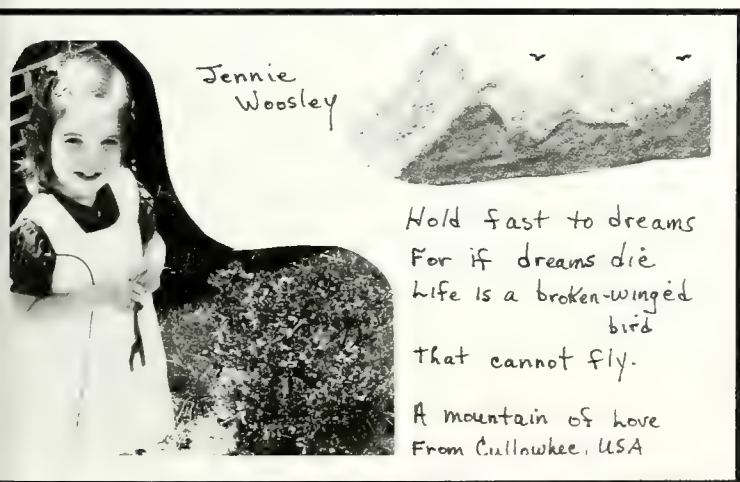 Jennie
Woosley
Hold fast to dreams
For if dreams die
Life is a broken-winged
bird
That cannot fly.
A mountain of Love
From Cullowhee, USA